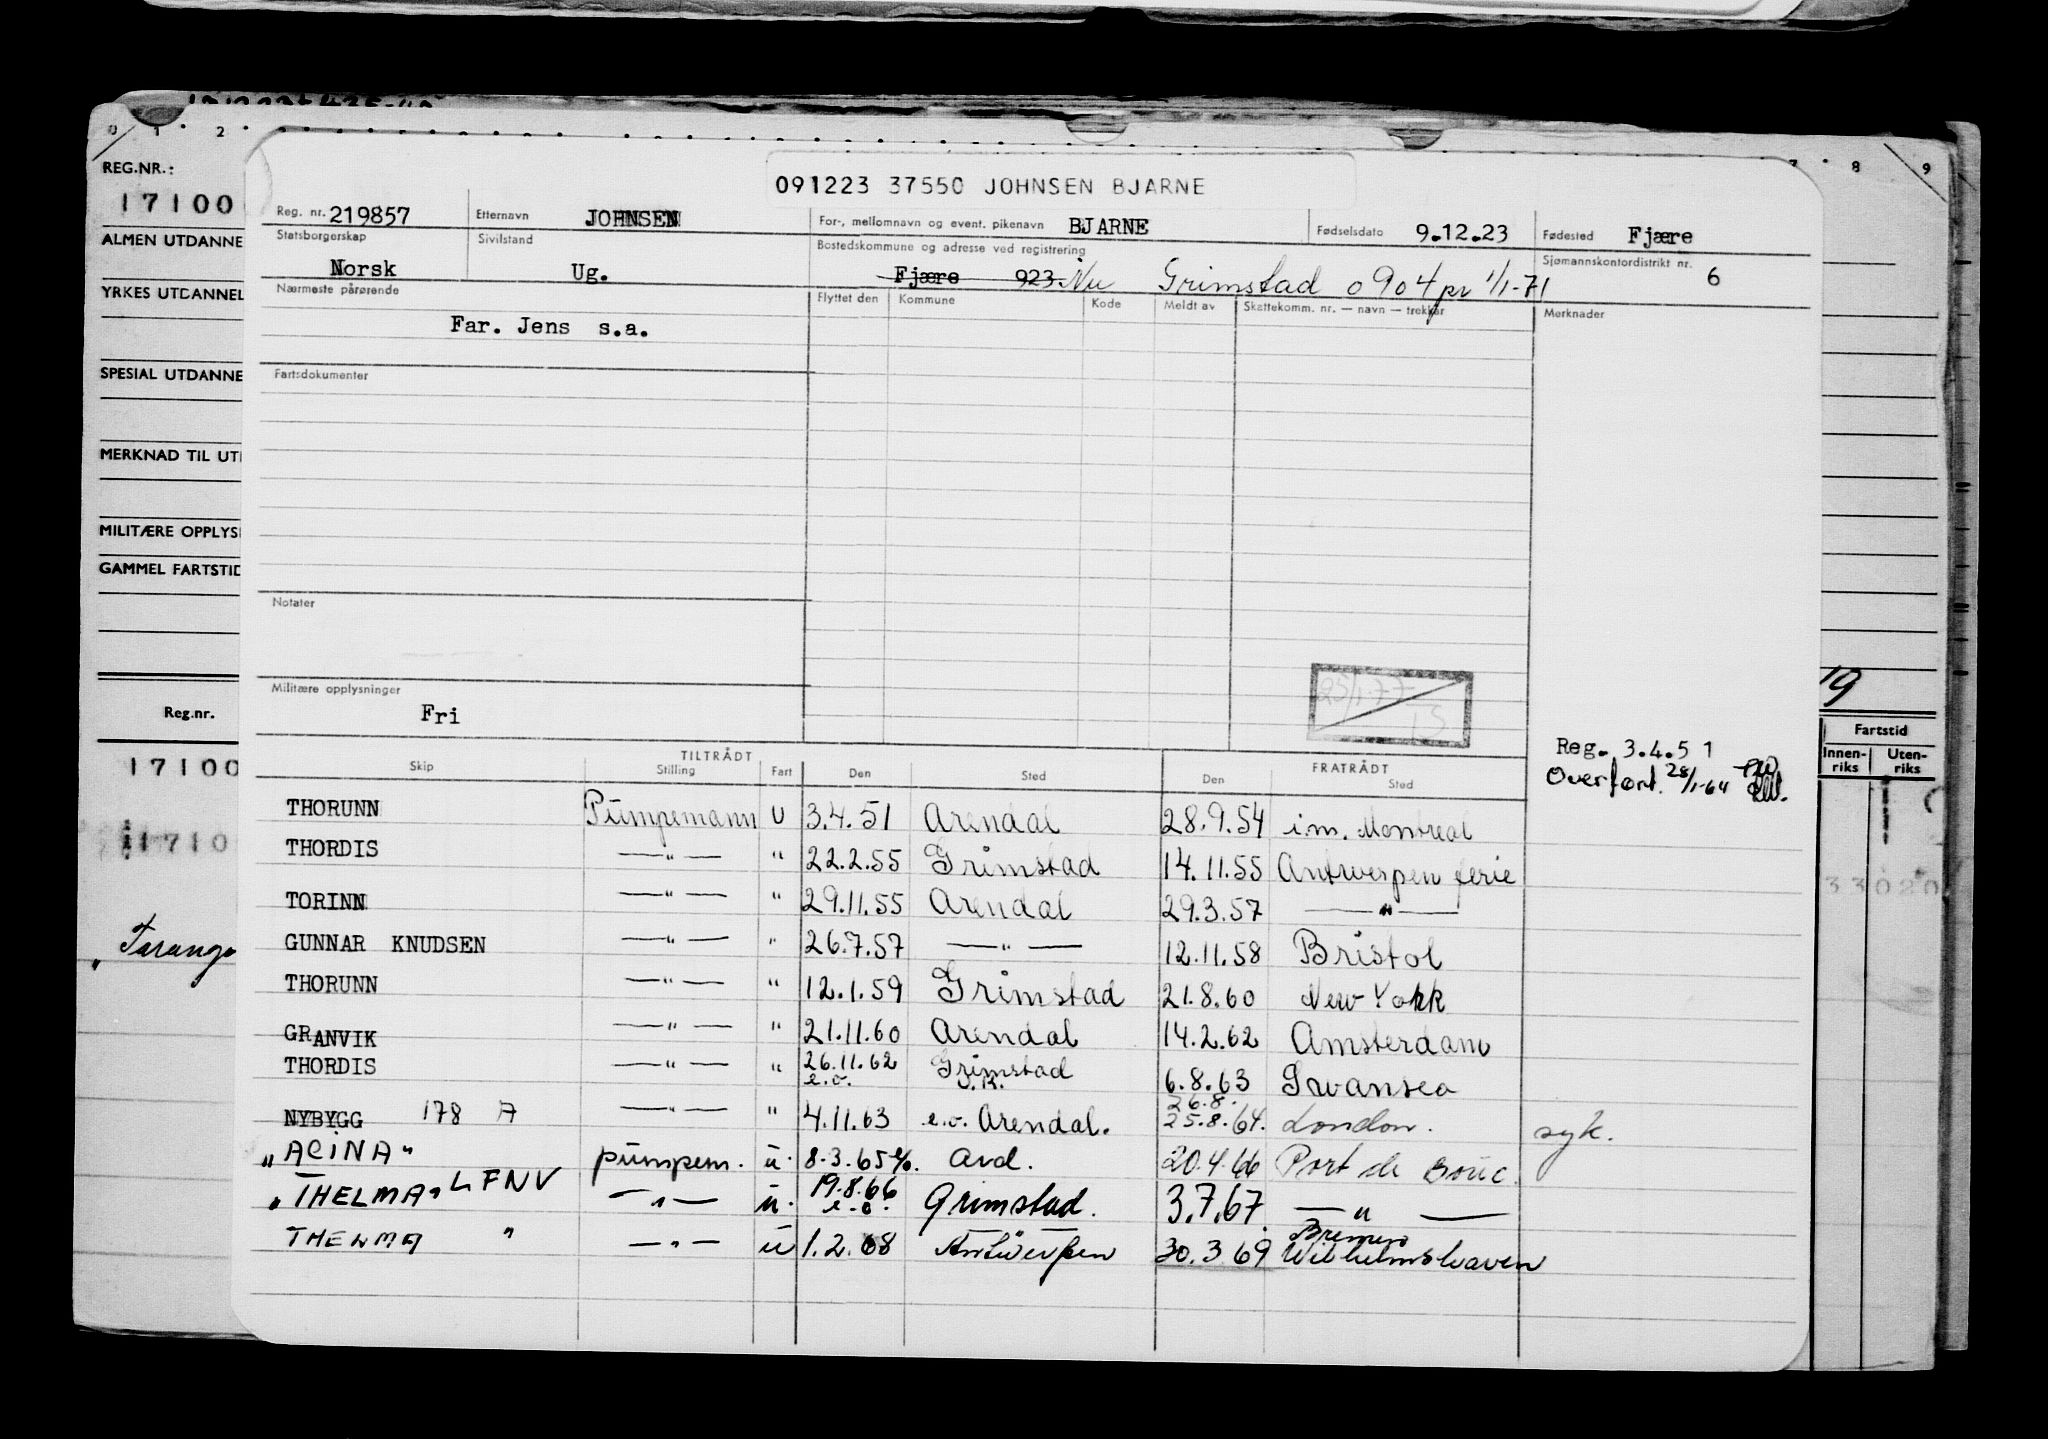 0 1 2 7 8 9
REG.NR.:
17100
ALMEN UTDANNE
YRKES UTDANNEL
SPESIAL UTDANNE
MERKNAD TIL UT
MILITÆRE OPPLYS
GAMMEL FARTSTID
Reg.nr.
17100
1710
19
Fartstid
Innen-riks Uten-riks
33020
091223 37550 JOHNSEN BJARNE
Reg. nr. 219857 Etternavn JOHNSEN For-, mellomnavn og event. pikenavn BJARNE Fødselsdato 9.12.23 Fødested Fjære
Statsborgerskap Norsk Sivilstand Ug. Bostedskommune og adresse ved registrering Fjære 923 Nu Grimstad 0904 pr 1/1-71 Sjømannskontordistrikt nr. 6
Nærmeste pårørende Flyttet den Kommune Kode Meldt av Skattekomm. nr. — navn — trekkår Merknader
Far. Jens s.a.
Fartsdokumenter
Notater
25/1-77
Militære opplysninger
Fri
Reg. 3.4.51
Overført. 28/1-64
TILTRÅDT FRATRÅDT
Skip Stilling Fart Den Sted Den Sted
THORUNN Pumpemann U 3.4.51 Arendal 28.9.54 i.m. Montreal
THORDIS —"— " 22.2.55 Grimstad 14.11.55 Antwerpen ferie
TORINN —"— " 29.11.55 Arendal 29.3.57 —"—
GUNNAR KNUDSEN —"— " 26.7.57 —"— 12.11.58 Bristol
THORUNN —"— " 12.1.59 Grimstad 21.8.60 New York
GRANVIK —"— " 21.11.60 Arendal 14.2.62 Amsterdam
THORDIS —"— " 26.11.62 e.o. Grimstad 6.8.63 Swansea
NYBYGG 178 A —"— " 4.11.63 e.o. Arendal. 26.8. 25.8.64. London. syk.
"ACINA" pumpem. u. 8.3.65 Ard. 20.4.66 Port de Bouc.
"THELMA" LFNV —"— u. 19.8.66 e.o. Grimstad. 3.7.67. —"—
THELMA " —"— u 1.2.68 Antwerpen 30.3.69 Bremen Wilhelmshaven